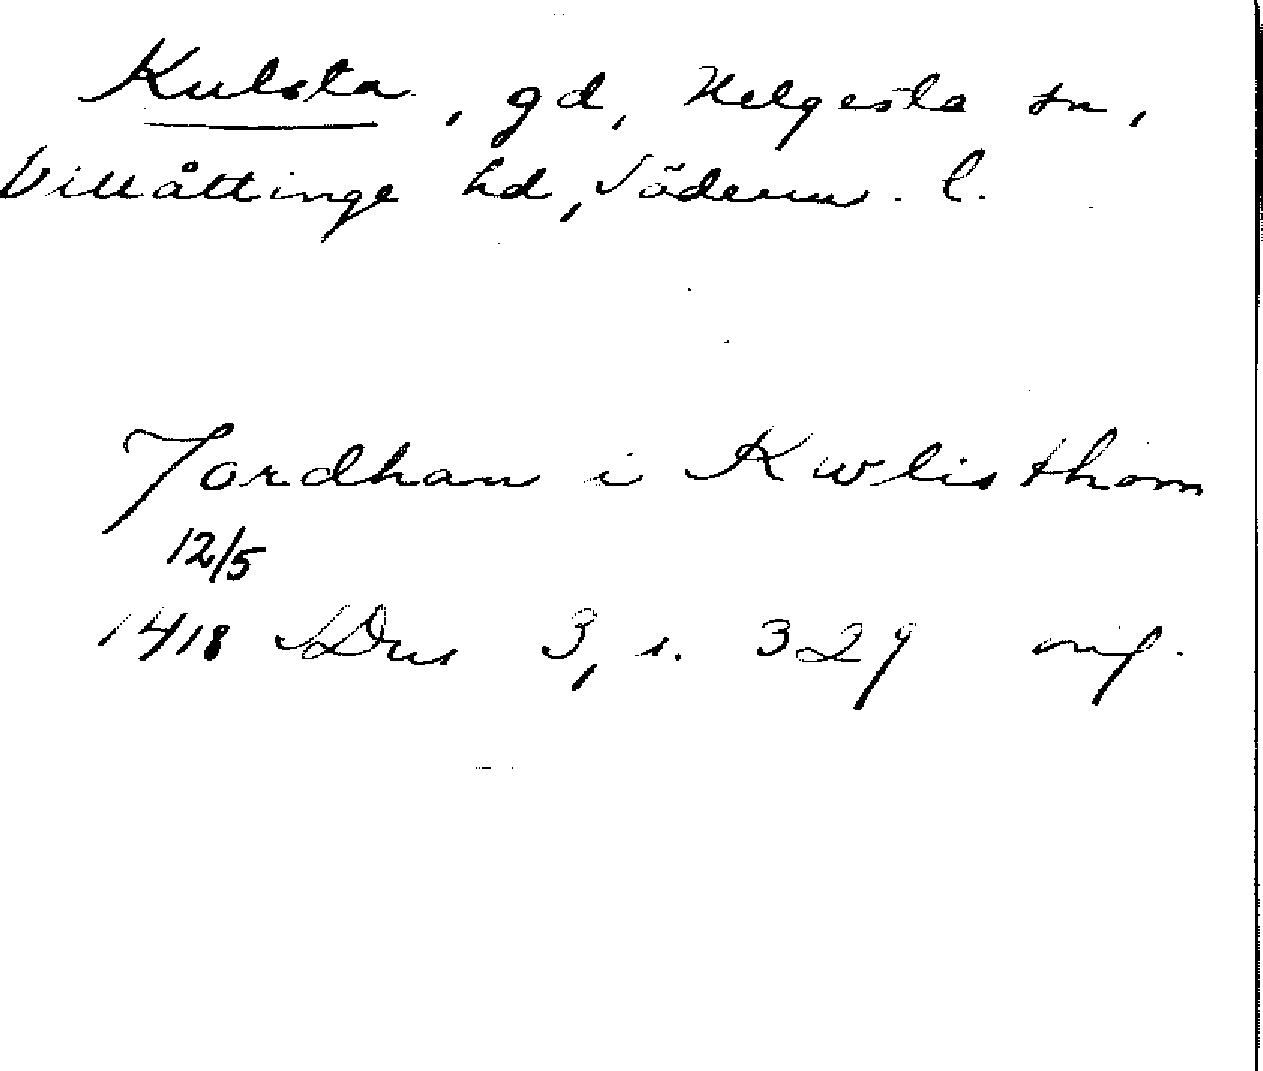 Kulsta, gd, Helgesta sn,
Villåttinge hd, Söderm. l.
Jordhan i Kwlisthom
12/5
1418 SDns 3, s. 329 orig.